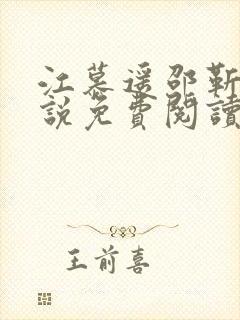 江慕遥邵靳
說免費閱讀
王前喜